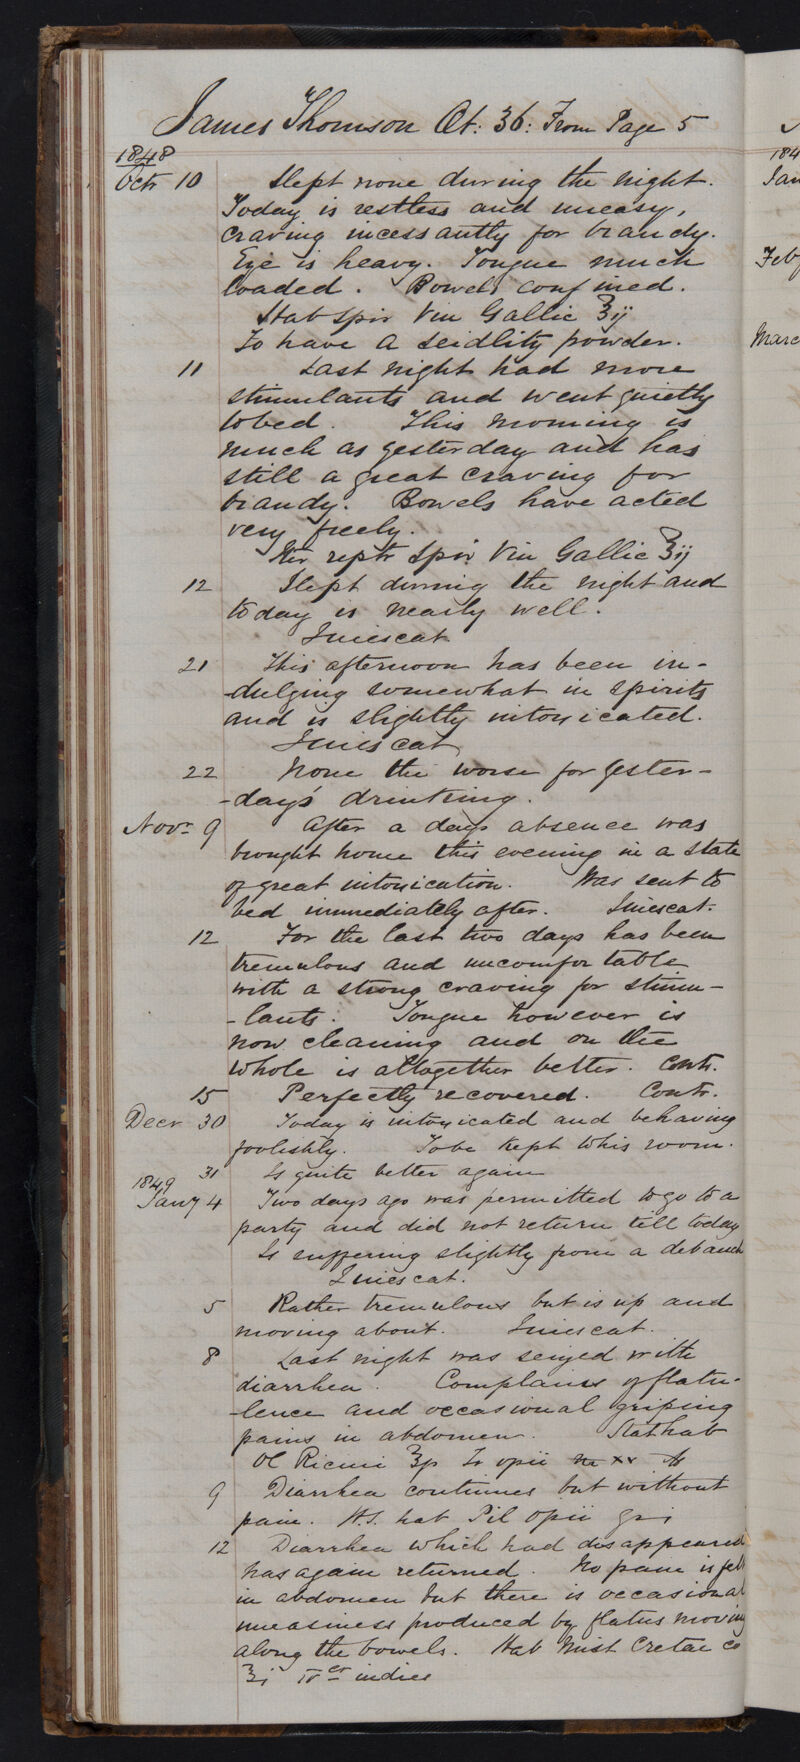 James Thomson Æt: 36: From Page 5
1848
Octr 10 Slept none during the night.
Today is restless and uneasy,
craving incessantly for brandy.
Eye is heavy. Tongue much
loaded. Bowels confined.
Hab Spir Vin Gallic ℥ij
To have a seidlity powder.
11 Last night had more
stimulants and went quietly
to bed. This morning is
much as yesterday and has
still a great craving for
brandy. Bowels have acted
very freely.
Iter reptr Spir Vin Gallic ℥ij
12 Slept during the night and
today is nearly well.
Quiescat
21 This afternoon has been in-
-dulging somewhat in spirits
and is slightly intoxicated.
Quiescat
22 None the worse for yester-
-day's drinking.
Novr 9 After a days absence was
brought home this evening in a state
of great intoxication. Was sent to
bed immediately after. Quiescat.
12 For the last two days has been
tremulous and uncomfortable
with a strong craving for stimu-
-lants. Tongue however is
now cleaning and on the
whole is altogether better. Contr.
15 Perfectly recovered. Contr.
Decr 30 Today is intoxicated and behaving
foolishly. To be kept to his room.
31 Is quite better again
1849
Jany 4 Two days ago was permitted to go to a
party and did not return till today
Is suffering slightly from a debauch
Quiescat.
5 Rather tremulous but is up and
moving about. Quiescat.
8 Last night was seized with
diarrhea. Complains of flatu-
-lence and occasional griping
pains in abdomen. Stat hab
Ol Ricini ℥p Tr opii m xx
9 Diarrhea continues but without
pain. H.S. hab Pil Opii gr i
12 Diarrhea which had disappeared
has again returned. No pain is felt
in abdomen but there is occasional
uneasiness produced by flatus moving
along the bowels. Hab Mist Cretae Co
℥i IVer indies
184
Jan
Feby
Marc